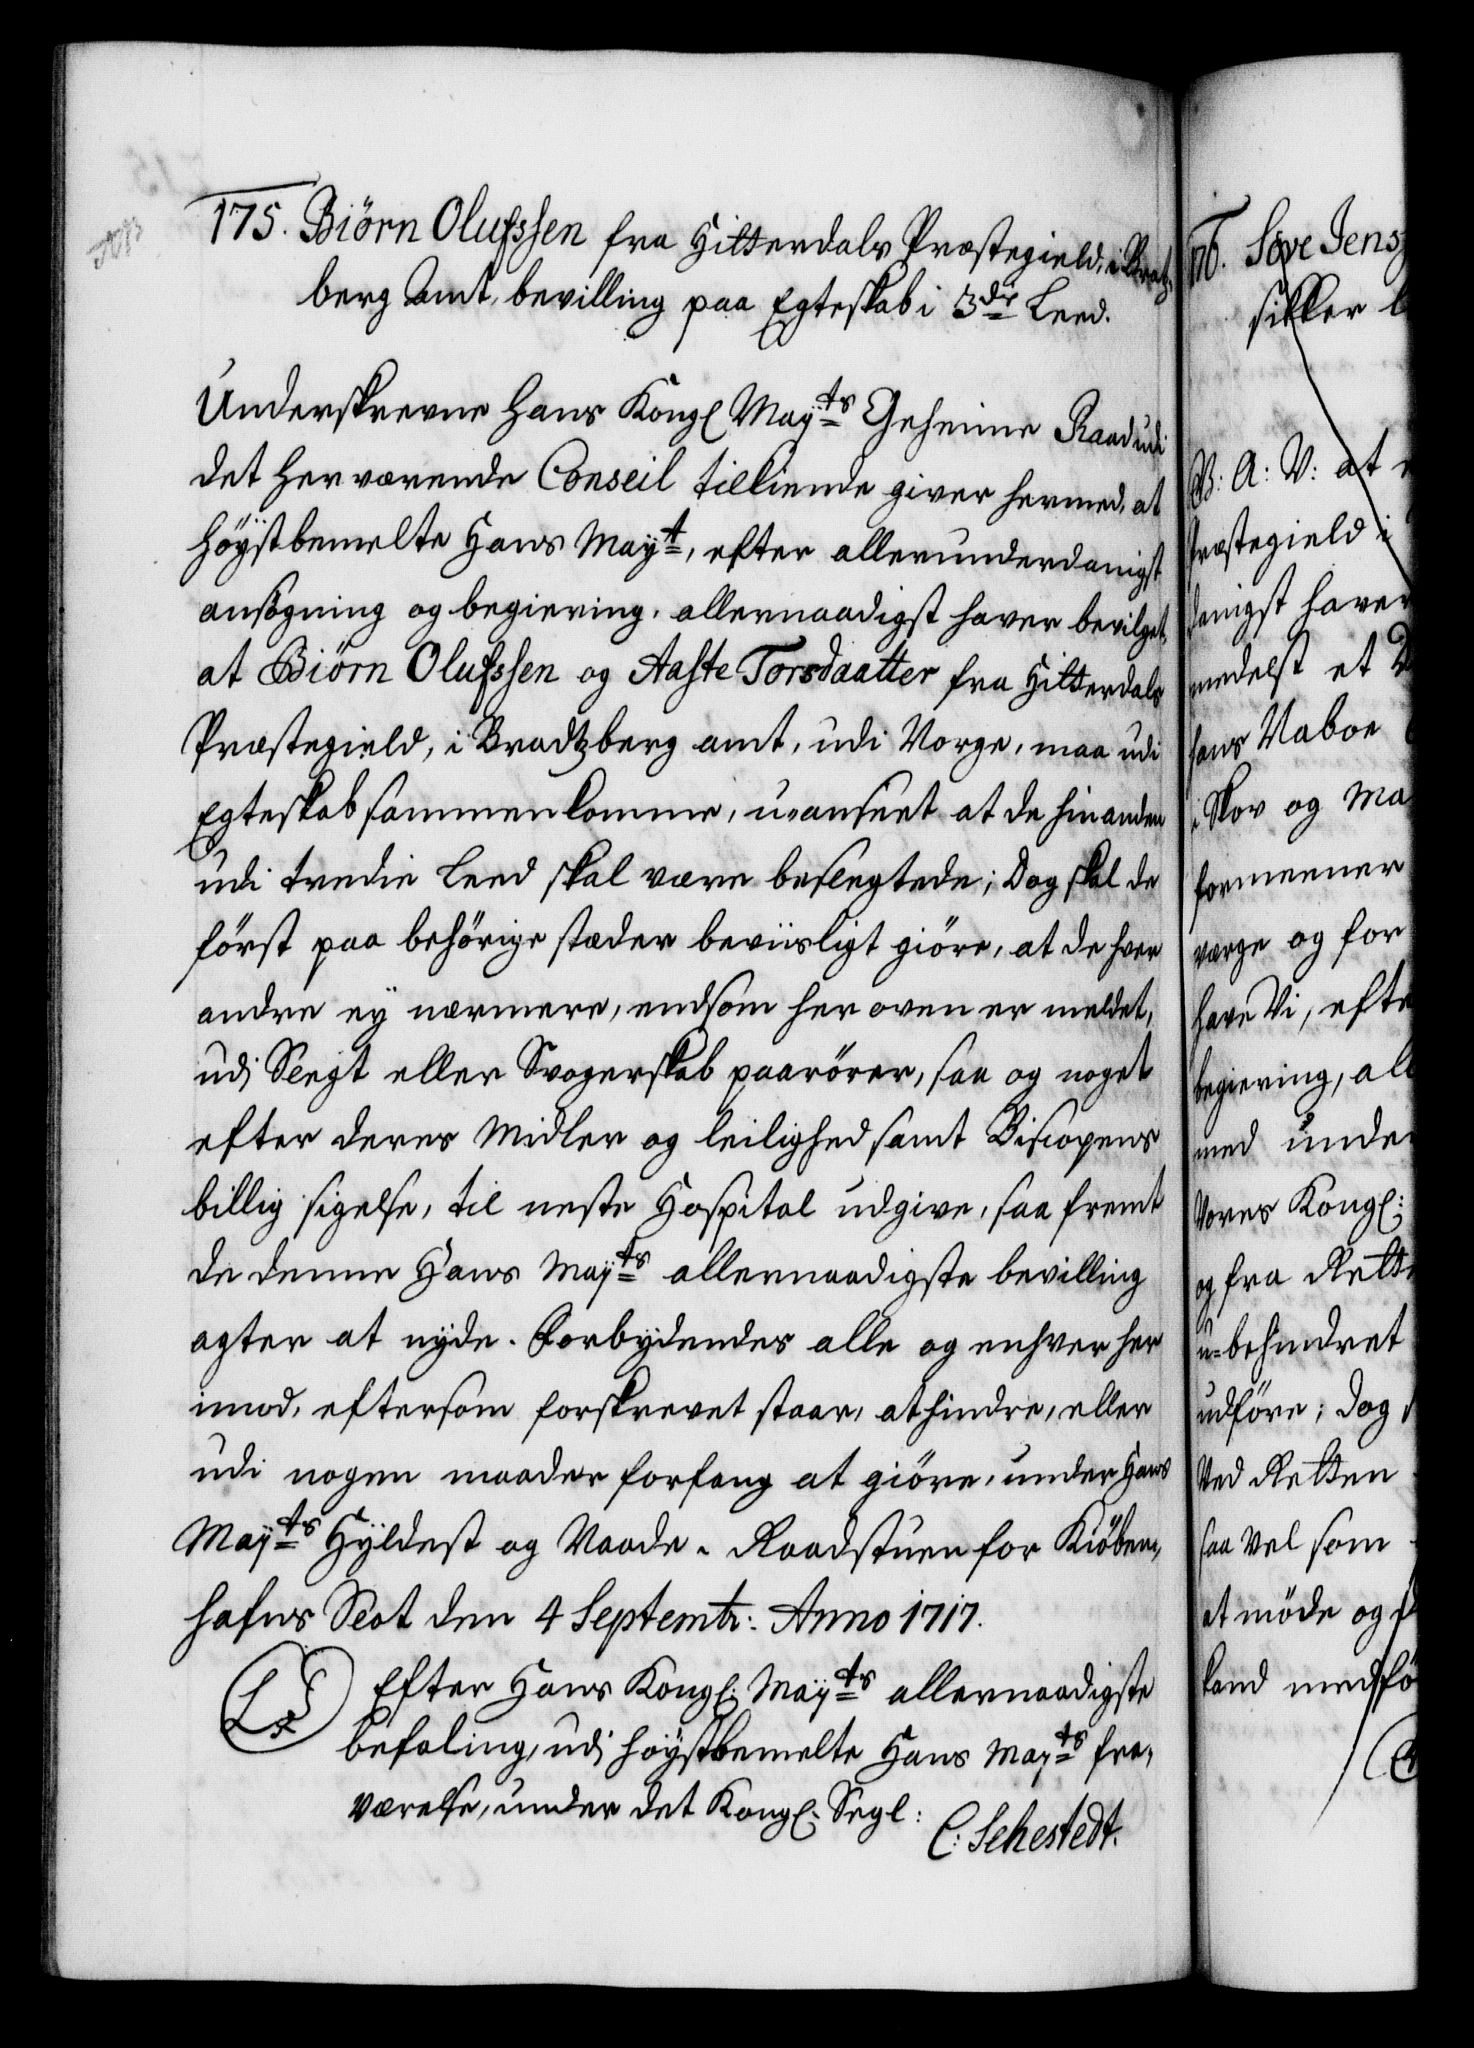 175. Biörn Olufssen fra Hitterdals Præstegield, i Bratz-
berg Amt, bevilling paa Egteskab i 3die Leed.
Underskrevne Hans Kongl Mayts Geheime Raad udi
det herværende Conseil tilkiende giver hermed, at
Höystbemelte Hans Mayt, efter allerunderdanigst
ansögning og begiering, allernaadigst haver bevilget,
at Biörn Olufssen og Aaste Torsdaatter fra Hitterdals
Præstegield, i Bradtzberg amt, udi Norge, maa udi
Egteskab sammenkomme, u-anseet at de hinanden
udi tredie Leed skal være beslegtede; Dog skal de
först paa behörige stæder beviisligt giöre, at de hver
andre ey nærmere, endsom her oven er meldet,
udi Slegt eller Svogerskab paarörer, saa og noget
efter deres Midler og leilighed samt Biscopens
billig sigelse, til neste Hospital udgive, saa fremt
de denne Hans Mayts allernaadigste bevilling
agter at nyde. Forbydendes alle og enhver her
imod, eftersom forskrevet staar, at hindre, eller
udi nogen maader forfang at giöre, under Hans
Mayts Hyldest og Naade. Raadstuen for Kiöben-
hafns Slot den 4 Septembr: Anno 1717.
LS
Efter Hans Kongl: Mayts allernaadigste
befaling, udi höystbemelte Hans Mayts fra-
værelse, under det Kongl: Segl:
C: Sehestedt.
176. Söve Jens
sikker
B: A: V: at
Præstegield i
danigst haver
medelst et
hans Naboe
i Skov og Ma
formeener
værge og for
have Vi, efte
begiering, all
med unde
Vores Kongl:
og fra Rette
u-behindret
udföre; Dog
Ved Retten
saa vel som
at möde og
kand medfö